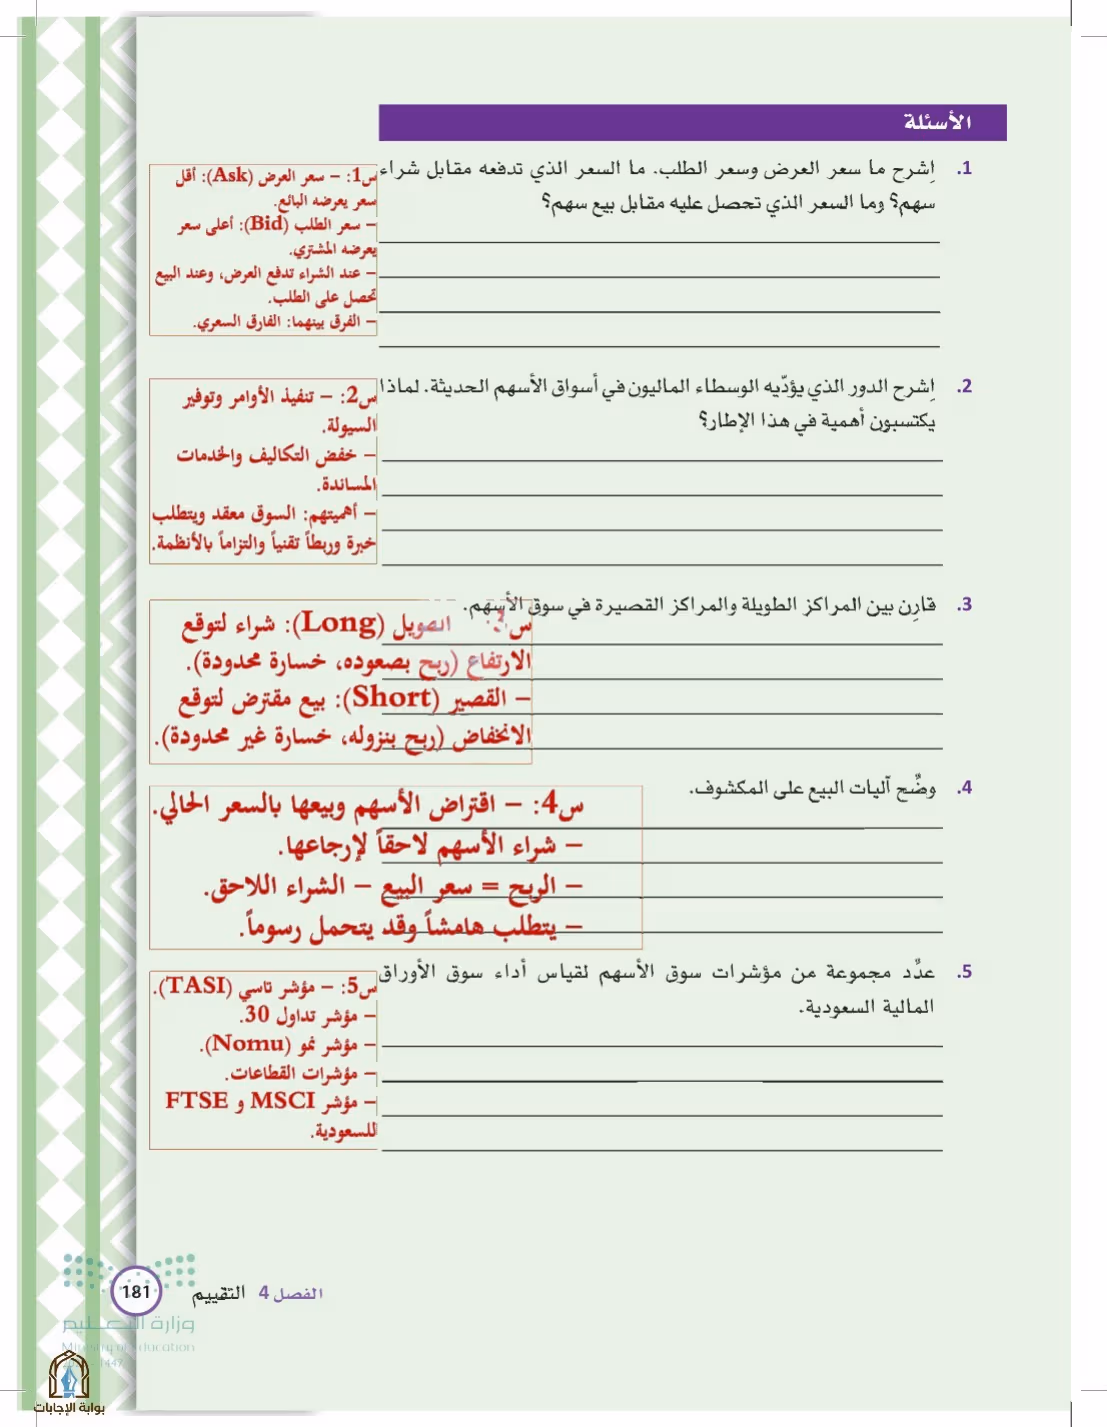 الأسئلة
1. اِشرح ما سعر العرض وسعر الطلب. ما السعر الذي تدفعه مقابل شراء
سهم؟ وما السعر الذي تحصل عليه مقابل بيع سهم؟
س1: – سعر العرض (Ask): أقل
سعر يعرضه البائع.
– سعر الطلب (Bid): أعلى سعر
يعرضه المشتري.
– عند الشراء تدفع العرض، وعند البيع
تحصل على الطلب.
– الفرق بينهما: الفارق السعري.
2. اِشرح الدور الذي يؤدّيه الوسطاء الماليون في أسواق الأسهم الحديثة. لماذا
يكتسبون أهمية في هذا الإطار؟
س2: – تنفيذ الأوامر وتوفير
السيولة.
– خفض التكاليف والخدمات
المساندة.
– أهميتهم: السوق معقد ويتطلب
خبرة وربطاً تقنياً والتزاماً بالأنظمة.
3. قارِن بين المراكز الطويلة والمراكز القصيرة في سوق الأسهم.
س3: الطويل (Long): شراء لتوقع
الارتفاع (ربح بصعوده، خسارة محدودة).
– القصير (Short): بيع مقترض لتوقع
الانخفاض (ربح بنزوله، خسارة غير محدودة).
4. وضِّح آليات البيع على المكشوف.
س4: – اقتراض الأسهم وبيعها بالسعر الحالي.
– شراء الأسهم لاحقاً لإرجاعها.
– الربح = سعر البيع – الشراء اللاحق.
– يتطلب هامشاً وقد يتحمل رسوماً.
5. عدِّد مجموعة من مؤشرات سوق الأسهم لقياس أداء سوق الأوراق
المالية السعودية.
س5: – مؤشر تاسي (TASI).
– مؤشر تداول 30.
– مؤشر نمو (Nomu).
– مؤشرات القطاعات.
– مؤشر MSCI و FTSE
للسعودية.
الفصل 4 التقييم 181
وزارة التعليم
Ministry of Education
1447
بوابة الإجابات